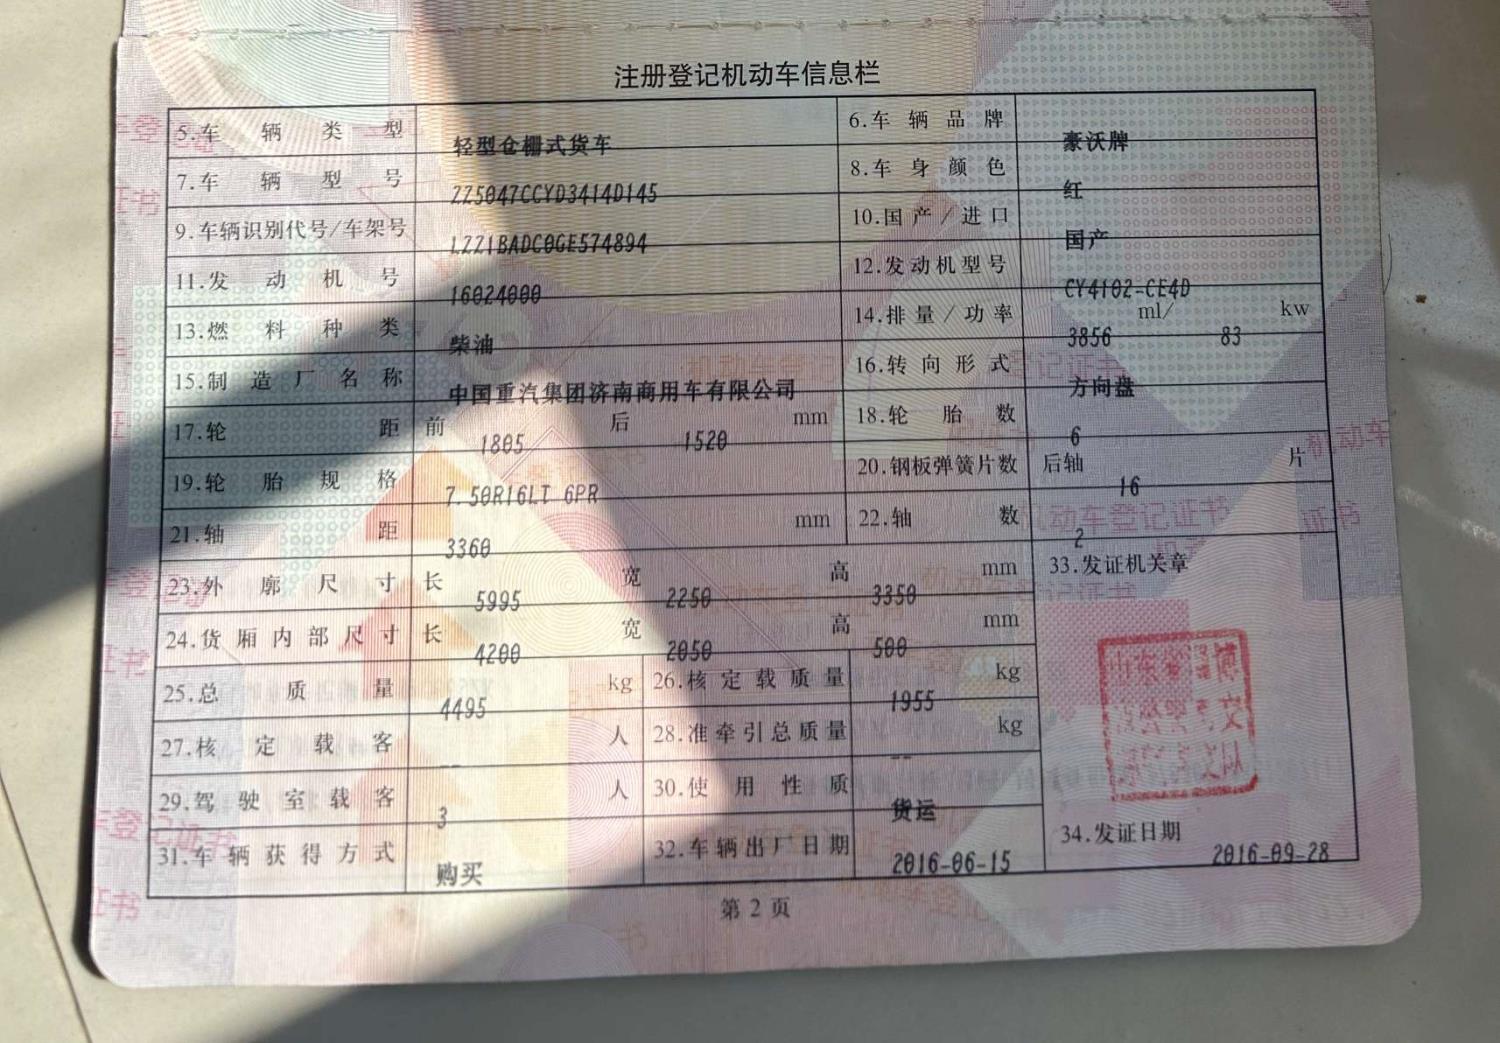 注册登记机动车信息栏
5.车辆类型 轻型仓栅式货车 6.车辆品牌 豪沃牌
7.车辆型号 ZZ5047CCYD3414D145 8.车身颜色 红
9.车辆识别代号/车架号 LZZ1BADC0GE574894 10.国产/进口 国产
11.发动机号 16024000 12.发动机型号 CY4102-CE4D
13.燃料种类 柴油 14.排量/功率 3856 ml/ 83 kw
15.制造厂名称 中国重汽集团济南商用车有限公司 16.转向形式 方向盘
17.轮距 前 1805 后 1520 mm 18.轮胎数 6
19.轮胎规格 7.50R16LT 6PR 20.钢板弹簧片数 后轴 16 片
21.轴距 3360 mm 22.轴数 2
23.外廓尺寸 长 5995 宽 2250 高 3350 mm 33.发证机关章
24.货厢内部尺寸 长 4200 宽 2050 高 500 mm
25.总质量 4495 kg 26.核定载质量 1955 kg
27.核定载客 -- 人 28.准牵引总质量 -- kg
29.驾驶室载客 3 人 30.使用性质 货运
31.车辆获得方式 购买 32.车辆出厂日期 2016-06-15 34.发证日期 2016-09-28
第2页